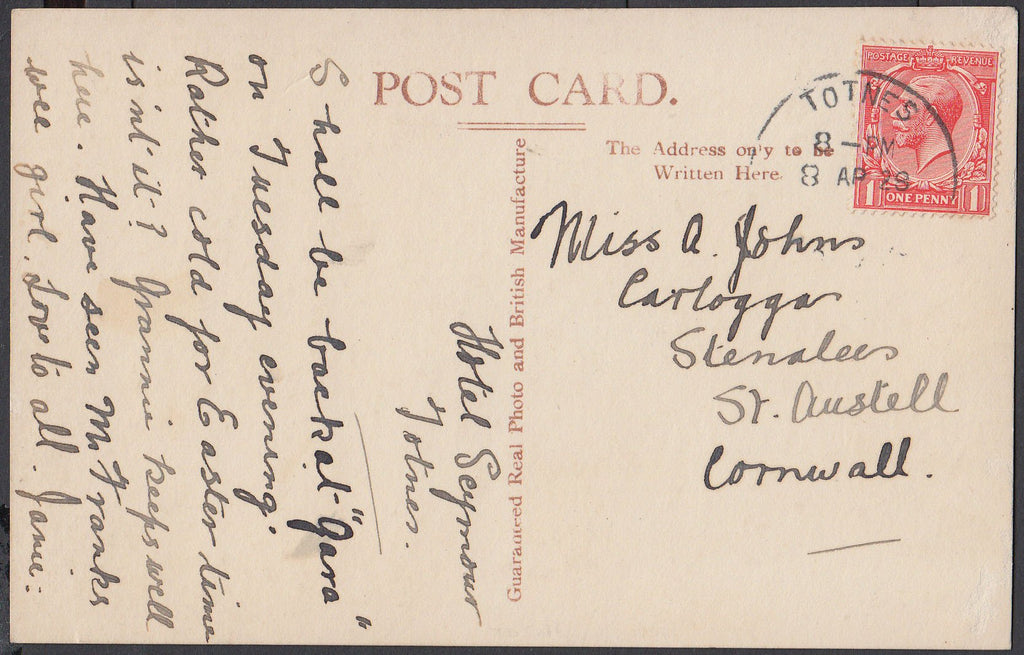 POST CARD.
The Address on'y to be
Written Here.
TOTNES
8 - PM
8 AP 28
POSTAGE REVENUE
1 ONE PENNY 1
Miss A. Johns
Carloggar
Stenalees
St. Austell
Cornwall.
Guaranteed Real Photo and British Manufacture
Hotel Seymour
Totnes.
Shall be back at "Gara"
on Tuesday evening.
Rather cold for Easter time
is int' it? Grannie keeps well
here. Have seen Mr Franks
wee girl. Love to all. Janie.